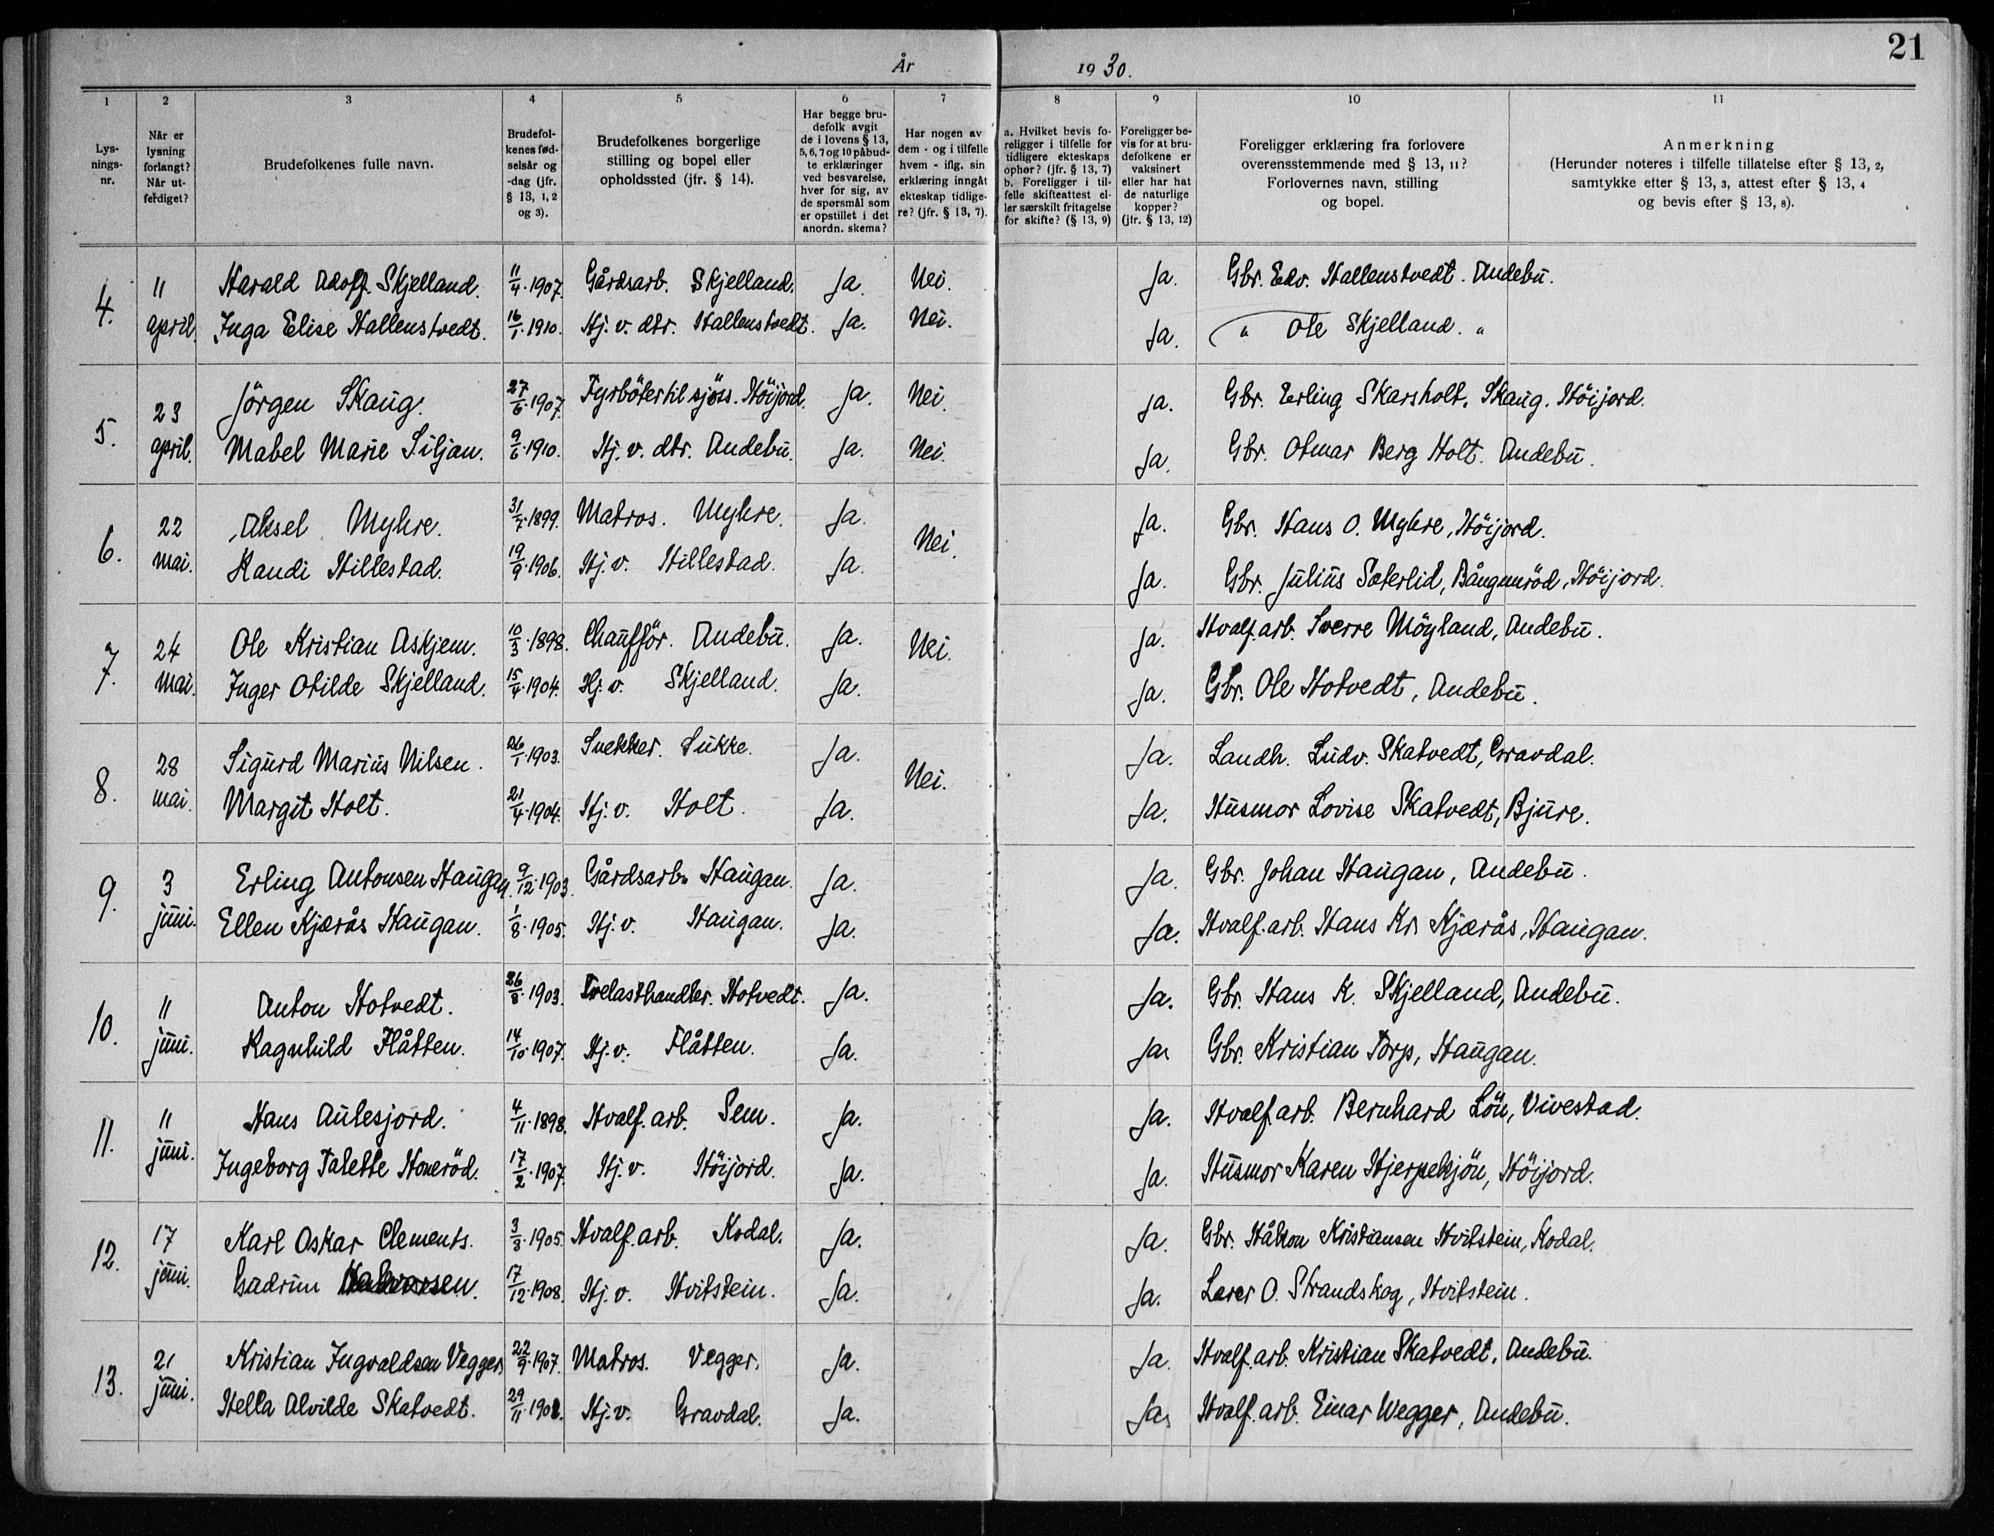 21
År 1930.
1
Lysnings-
nr.
2
Når er
lysning
forlangt?
Når ut-
ferdiget?
3
Brudefolkenes fulle navn.
4
Brudefol-
kenes fød-
selsår og
-dag (jfr.
§ 13, 1, 2
og 3).
5
Brudefolkenes borgerlige
stilling og bopel eller
opholdssted (jfr. § 14).
6
Har begge bru-
defolk avgit
de i lovens § 13,
5, 6, 7 og 10 påbud-
te erklæringer
ved besvarelse,
hver for sig, av
de spørsmål som
er opstillet i det
anordn. skema?
7
Har nogen av
dem - og i tilfelle
hvem - iflg. sin
erklæring inngåt
ekteskap tidlige-
re? (jfr. § 13, 7).
8
a. Hvilket bevis fo-
religger i tilfelle for
tidligere ekteskaps
ophør? (jfr. § 13, 7)
b. Foreligger i til-
felle skifteattest el-
ler særskilt fritagelse
for skifte? (§ 13, 9)
9
Foreligger be-
vis for at bru-
defolkene er
vaksinert
eller har hat
de naturlige
kopper?
(jfr. § 13, 12)
10
Foreligger erklæring fra forlovere
overensstemmende med § 13, 11?
Forlovernes navn, stilling
og bopel.
11
Anmerkning
(Herunder noteres i tilfelle tillatelse efter § 13, 2,
samtykke efter § 13, 3, attest efter § 13, 4
og bevis efter § 13, 8).
4. 11 Harald Adolf Skjelland. 11/4.1907. Gårdsarb. Skjelland. Ja. Nei. Ja. Gbr. Edv. Hallenstvedt. Andebu.
april. Inga Elise Hallenstvedt. 16/1.1910. Hj. v. dtr. Hallenstvedt. Ja. Nei. Ja. " Ole Skjelland. "
5. 23 Jörgen Skaug. 27/6.1907. Fyrböter til sjöss. Höijord. Ja. Nei. Ja. Gbr. Erling Skarsholt. Skaug. Höijord.
april. Mabel Marie Siljan. 9/6.1910. Hj. v. dtr. Andebu. Ja. Nei. Ja. Gbr. Otmar Berg Holt. Andebu.
6. 22 Aksel Myhre. 31/7.1899. Matros. Myhre. Ja. Nei. Ja. Gbr. Hans O. Myhre, Höijord.
mai. Randi Hillestad. 19/9.1906. Hj. v. Hillestad. Ja. Ja. Gbr. Julius Sæterlid, Bångunröd, Höijord.
7. 24 Ole Kristian Askjem. 10/3.1898. Chaufför. Andebu. Ja. Nei. Ja. Hvalf.arb. Sverre Möyland, Andebu.
mai. Inger Otilde Skjelland. 15/4.1904. Hj. v. Skjelland. Ja. Ja. Gbr. Ole Hotvedt, Andebu.
8. 28 Sigurd Marius Nilsen. 26/1.1903. Snekker. Sukke. Ja. Nei. Ja. Landh. Ludv. Skatvedt, Gravdal.
mai. Margit Holt. 21/4.1904. Hj. v. Holt. Ja. Ja. Husmor Lovise Skatvedt, Bjure.
9. 3 Erling Antonsen Haugan. 9/12.1903. Gårdsarb. Haugan. Ja. Ja. Gbr. Johan Haugan, Andebu.
juni. Ellen Kjærås Haugan. 1/8.1905. Hj. v. Haugan. Ja. Ja. Hvalf.arb. Hans Kr. Kjærås, Haugan.
10. 11 Anton Hotvedt. 26/8.1903. Trelasthandler. Hotvedt. Ja. Ja. Gbr. Hans K. Skjelland, Andebu.
juni. Ragnhild Flåtten. 14/10.1907. Hj. v. Flåtten. Ja. Ja. Gbr. Kristian Torp, Haugan.
11. 11 Hans Aulesjord. 4/11.1898. Hvalf.arb. Sem. Ja. Ja. Hvalf.arb. Bernhard Löu, Vivestad.
juni. Ingeborg Talette Honeröd. 17/2.1907. Hj. v. Höijord. Ja. Ja. Husmor Karen Hjerpekjön, Höijord.
12. 17 Karl Oskar Clements. 3/3.1905. Hvalf.arb. Kodal. Ja. Ja. Gbr. Håkon Kristiansen Hvitstein, Kodal.
juni. Gudrun Halvorsen. 17/12.1908. Hj. v. Hvitstein. Ja. Ja. Lærer O. Strandskog, Hvitstein.
13. 21 Kristian Ingvaldsen Vegger. 22/9.1907. Matros. Vegger. Ja. Ja. Hvalf.arb. Kristian Skatvedt, Andebu.
juni. Hella Alvilde Skatvedt. 29/11. Hj. v. Gravdal. Ja. Ja. Hvalf.arb. Einar Wegger, Andebu.